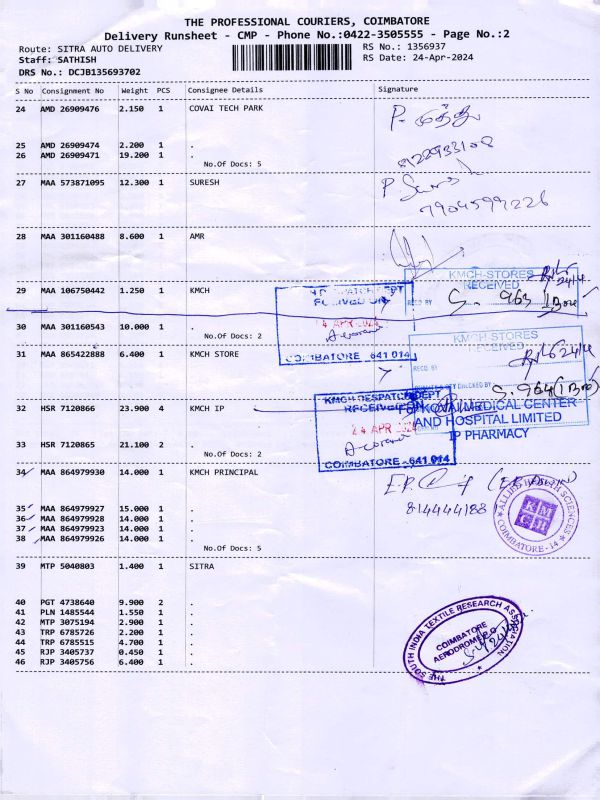 THE PROFESSIONAL COURIERS, COIMBATORE
Delivery Runsheet - CMP - Phone No.:0422-3505555 - Page No.:2
Route: SITRA AUTO DELIVERY RS No.: 1356937
Staff: SATHISH RS Date: 24-Apr-2024
DRS No.: DCJB135693702
S No Consignment No Weight PCS Consignee Details Signature
24 AMD 26909476 2.150 1 COVAI TECH PARK
P. முத்து
25 AMD 26909474 2.200 1 .
26 AMD 26909471 19.200 1 .
No.Of Docs: 5
27 MAA 573871095 12.300 1 SURESH
7904599226
28 MAA 301160488 8.600 1 AMR
KMCH-STORES
RECEIVED
29 MAA 106750442 1.250 1 KMCH
RECD BY S. 963
30 MAA 301160543 10.000 1 .
No.Of Docs: 2
APR 2024
COIMBATORE 641 014
KMCH-STORES
RECEIVED
31 MAA 865422888 6.400 1 KMCH STORE
RECD. BY
S. 964
32 HSR 7120866 23.900 4 KMCH IP
KMCH-DESPATCH DEPT
RECEIVED ON
24 APR
COIMBATORE - 641 014
KOVAI MEDICAL CENTER
AND HOSPITAL LIMITED
IP PHARMACY
33 HSR 7120865 21.100 2 .
No.Of Docs: 2
34 MAA 864979930 14.000 1 KMCH PRINCIPAL
814444188
35 MAA 864979927 15.000 1 .
36 MAA 864979928 14.000 1 .
37 MAA 864979923 14.000 1 .
38 MAA 864979926 14.000 1 .
No.Of Docs: 5
ALLIED HEALTH SCIENCES
KM
CH
COIMBATORE - 14
39 MTP 5040803 1.400 1 SITRA
40 PGT 4738640 9.900 2 .
41 PLN 1485544 1.550 1 .
42 MTP 3075194 2.900 1 .
43 TRP 6785726 2.200 1 .
44 TRP 6785515 4.700 1 .
45 RJP 3405737 0.450 1 .
46 RJP 3405756 6.400 1 .
THE SOUTH INDIA TEXTILE RESEARCH ASSOCIATION.
COIMBATORE
AERODROME P.O